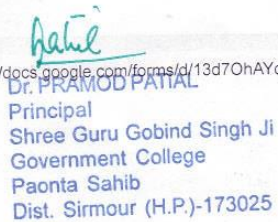 /docs.google.com/forms/d/13d7OhAYc
Dr. PRAMOD PATIAL
Principal
Shree Guru Gobind Singh Ji
Government College
Paonta Sahib
Dist. Sirmour (H.P.)-173025